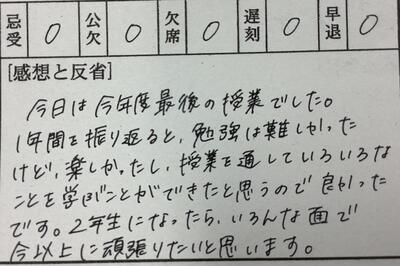 忌受 0 公欠 0 欠席 0 遅刻 0 早退 0
[感想と反省]
今日は今年度最後の授業でした。
1年間を振り返ると、勉強は難しかった
けど、楽しかったし、授業を通していろいろな
ことを学ぶことができたと思うので良かった
です。2年生になったら、いろんな面で
今以上に頑張りたいと思います。